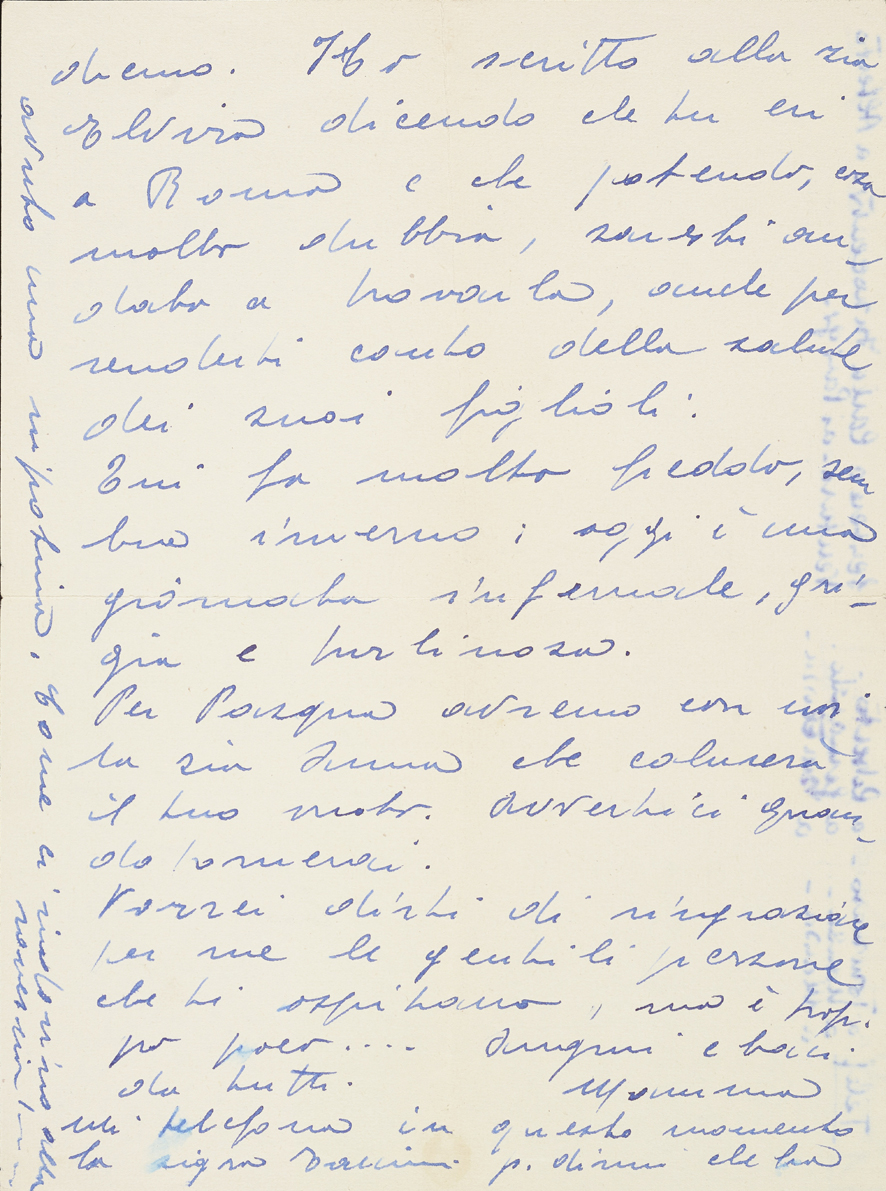 dremo. Ho scritto alla zia
Elvira dicendo che tu eri
a Roma e che potendo, cosa
molto dubbia, saresti an-
data a trovarla, anche per
renderti conto della salute
dei suoi figlioli.
Qui fa molto freddo, sem
bra inverno; oggi è una
giornata infernale, gri-
gia e piovinosa.
Per Pasqua avremo con noi
la zia Anna che colmerà
il tuo vuoto. Avvertici quan-
do tornerai.
Vorrei dirti di ringraziare
per me le gentili persone
che ti ospitano, ma è trop.
po poco.... Auguri e baci
da tutti. Mamma
Mi telefona in questo momento
la sigra p. dirmi che ha
avuto una nipotina. Come ci